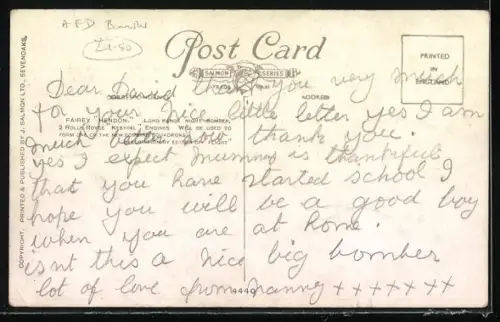 A F D Bomber
£4-50
Post Card
SALMON SERIES
PRINTED
IN
ENGLAND
ADDRESS
Dear David thank you very much
for your nice little letter yes I am
much better now thank you.
yes I expect mummy is thankful
that you have started school I
hope you will be a good boy
when you are at home.
isnt this a nice big bomber
lot of love from nanny + + x x x x x
FAIREY "HENDON." LONG RANGE NIGHT BOMBER,
2 ROLLS ROYCE "KESTREL" ENGINES. WILL BE USED TO
FORM ONE OF THE NEW BOMBER SQUADRONS.
4449
COPYRIGHT. PRINTED & PUBLISHED BY J. SALMON LTD., SEVENOAKS.